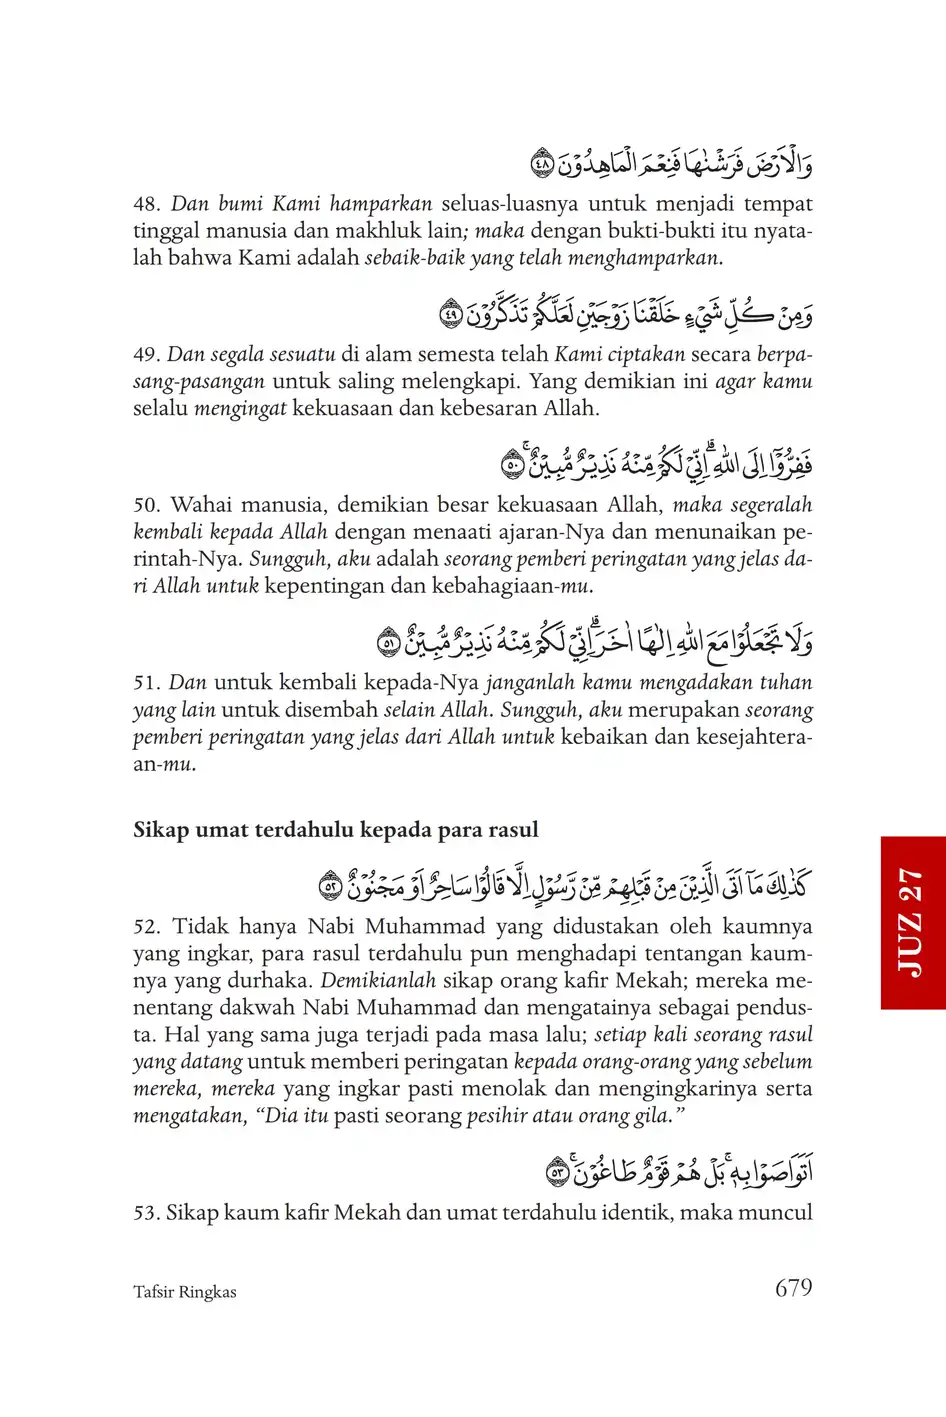 وَالْاَرْضَ فَرَشْنٰهَا فَنِعْمَ الْمَاهِدُوْنَ ﴿٤٨﴾
48. Dan bumi Kami hamparkan seluas-luasnya untuk menjadi tempat
tinggal manusia dan makhluk lain; maka dengan bukti-bukti itu nyata-
lah bahwa Kami adalah sebaik-baik yang telah menghamparkan.
وَمِنْ كُلِّ شَيْءٍ خَلَقْنَا زَوْجَيْنِ لَعَلَّكُمْ تَذَكَّرُوْنَ ﴿٤٩﴾
49. Dan segala sesuatu di alam semesta telah Kami ciptakan secara berpa-
sang-pasangan untuk saling melengkapi. Yang demikian ini agar kamu
selalu mengingat kekuasaan dan kebesaran Allah.
فَفِرُّوْٓا اِلَى اللّٰهِ ۗاِنِّيْ لَكُمْ مِّنْهُ نَذِيْرٌ مُّبِيْنٌ ۚ ﴿٥٠﴾
50. Wahai manusia, demikian besar kekuasaan Allah, maka segeralah
kembali kepada Allah dengan menaati ajaran-Nya dan menunaikan pe-
rintah-Nya. Sungguh, aku adalah seorang pemberi peringatan yang jelas da-
ri Allah untuk kepentingan dan kebahagiaan-mu.
وَلَا تَجْعَلُوْا مَعَ اللّٰهِ اِلٰهًا اٰخَرَ ۗاِنِّيْ لَكُمْ مِّنْهُ نَذِيْرٌ مُّبِيْنٌ ﴿٥١﴾
51. Dan untuk kembali kepada-Nya janganlah kamu mengadakan tuhan
yang lain untuk disembah selain Allah. Sungguh, aku merupakan seorang
pemberi peringatan yang jelas dari Allah untuk kebaikan dan kesejahtera-
an-mu.
Sikap umat terdahulu kepada para rasul
كَذٰلِكَ مَآ اَتَى الَّذِيْنَ مِنْ قَبْلِهِمْ مِّنْ رَّسُوْلٍ اِلَّا قَالُوْا سَاحِرٌ اَوْ مَجْنُوْنٌ ﴿٥٢﴾
52. Tidak hanya Nabi Muhammad yang didustakan oleh kaumnya
yang ingkar, para rasul terdahulu pun menghadapi tentangan kaum-
nya yang durhaka. Demikianlah sikap orang kafir Mekah; mereka me-
nentang dakwah Nabi Muhammad dan mengatainya sebagai pendus-
ta. Hal yang sama juga terjadi pada masa lalu; setiap kali seorang rasul
yang datang untuk memberi peringatan kepada orang-orang yang sebelum
mereka, mereka yang ingkar pasti menolak dan mengingkarinya serta
mengatakan, “Dia itu pasti seorang pesihir atau orang gila.”
اَتَوَاصَوْا بِهٖۚ بَلْ هُمْ قَوْمٌ طَاغُوْنَ ۚ ﴿٥٣﴾
53. Sikap kaum kafir Mekah dan umat terdahulu identik, maka muncul
JUZ 27
Tafsir Ringkas
679